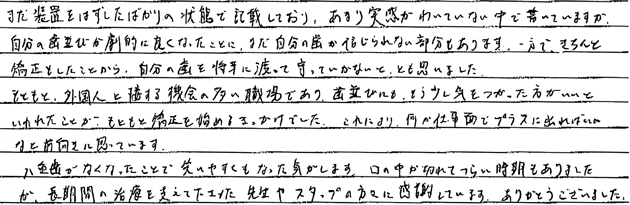 まだ装置をはずしたばかりの状態で記載しており、あまり実感がわいていない中で書いていますが、
自分の歯並びが劇的に良くなったことに、まだ自分の歯か信じられない部分もあります。一方で、きちんと
矯正をしたことから、自分の歯を将来に渡って守っていかないと、とも思いました。
もともと、外国人と接する機会の多い職場であり、歯並びにも、もう少し気をつかった方がいいと
いわれたことが、もともと矯正を始めるきっかけでした。これにより、何か仕事面でプラスに出ればいい
なと前向きに思っています。
八重歯がなくなったことで笑いやすくもなった気がします。口の中が切れてつらい時期もありました
が、長期間の治療を支えて下さった先生やスタッフの方々に感謝しています。ありがとうございました。